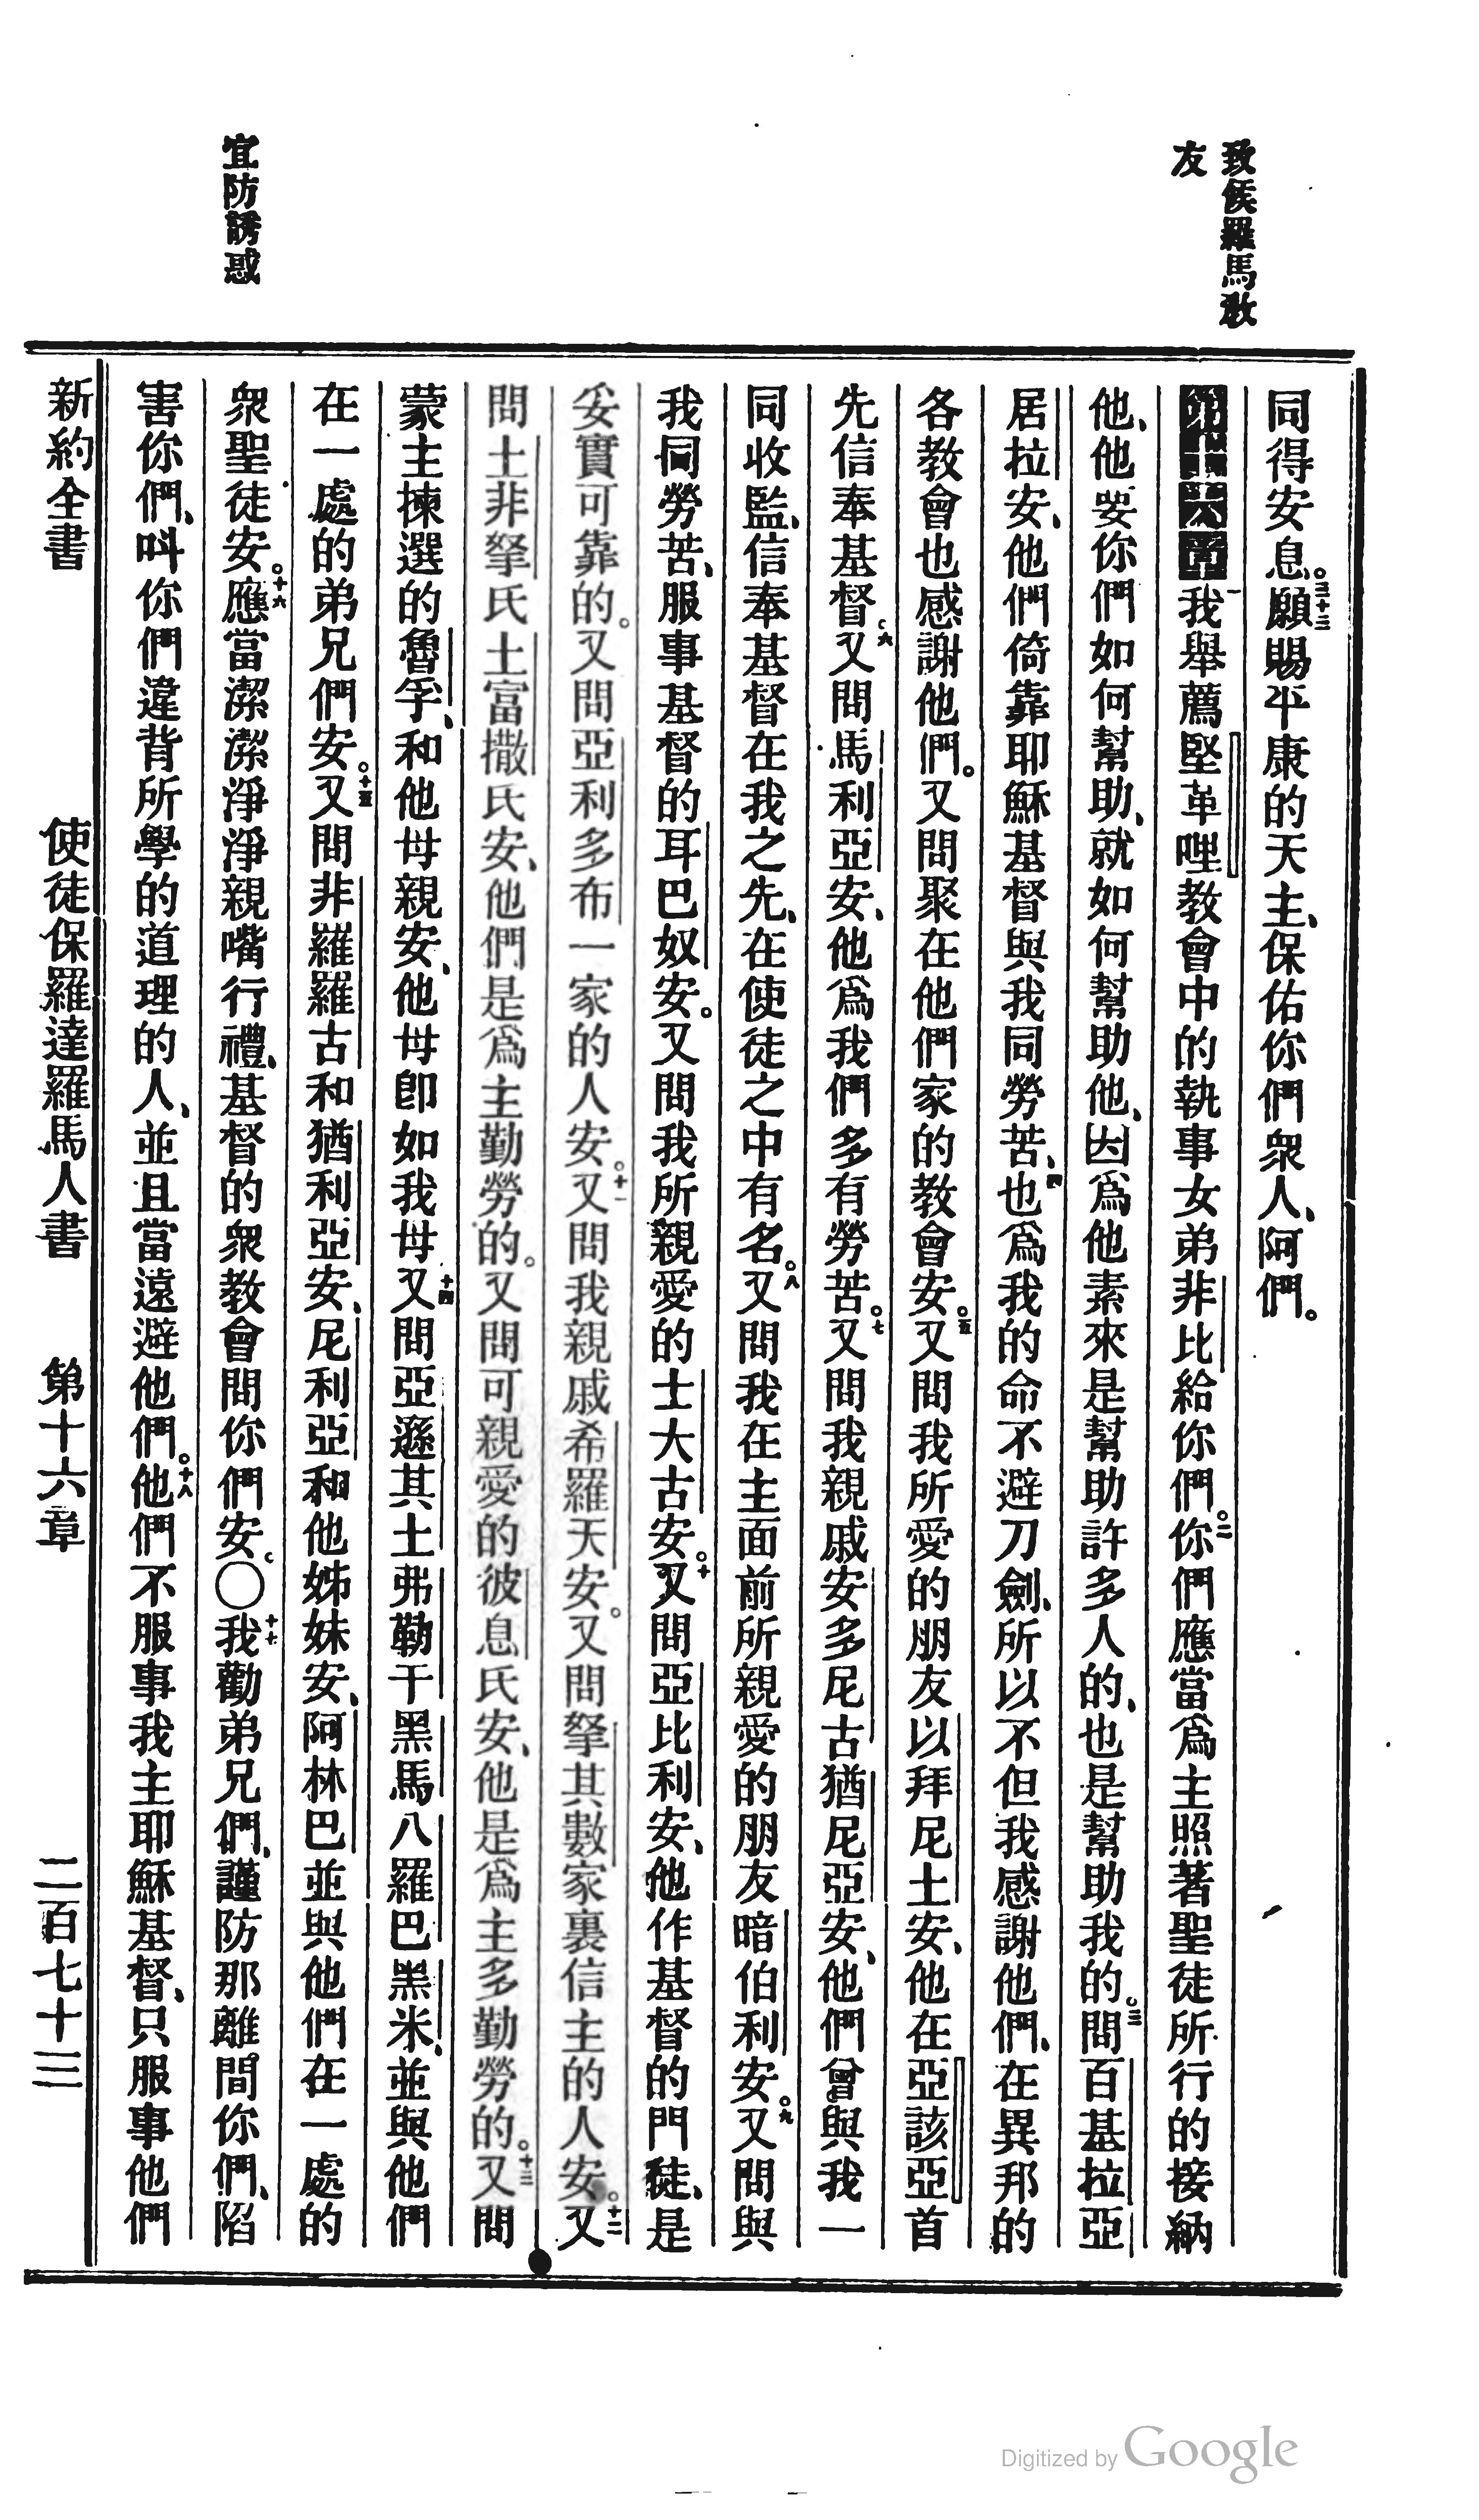 致候羅馬教
友
宜防誘惑
同得安息。三十三願賜平康的天主、保佑你們衆人、阿們。
第十六章一我舉薦堅革哩教會中的執事女弟非比給你們。二你們應當爲主照著聖徒所行的接納
他、他要你們如何幫助、就如何幫助他、因爲他素來是幫助許多人的、也是幫助我的。三問百基拉亞
居拉安、他們倚靠耶穌基督與我同勞苦、四也爲我的命不避刀劍、所以不但我感謝他們、在異邦的
各教會也感謝他們。又問聚在他們家的教會安。五又問我所愛的朋友以拜尼土安、他在亞該亞首
先信奉基督。六又問馬利亞安、他爲我們多有勞苦。七又問我親戚安多尼古猶尼亞安、他們曾與我一
同收監、信奉基督在我之先、在使徒之中有名。八又問我在主面前所親愛的朋友暗伯利安。九又問與
我同勞苦、服事基督的耳巴奴安。又問我所親愛的士大古安。十又問亞比利安、他作基督的門徒、是
妥實可靠的。又問亞利多布一家的人安。十一又問我親戚希羅天安。又問拏其數家裏信主的人安。十二又
問土非拏氏土富撒氏安、他們是爲主勤勞的。又問可親愛的彼息氏安、他是爲主多勤勞的。十三又問
蒙主揀選的魯孚、和他母親安、他母卽如我母。十四又問亞遜其土弗勒干黑馬八羅巴黑米、並與他們
在一處的弟兄們安。十五又問非羅羅古和猶利亞安、尼利亞和他姊妹安、阿林巴並與他們在一處的
衆聖徒安。十六應當潔潔淨淨親嘴行禮、基督的衆教會問你們安。〇十七我勸弟兄們、謹防那離間你們、陷
害你們、叫你們違背所學的道理的人、並且當遠避他們。十八他們不服事我主耶穌基督、只服事他們
新約全書 使徒保羅達羅馬人書 第十六章 二百七十三
Digitized by Google